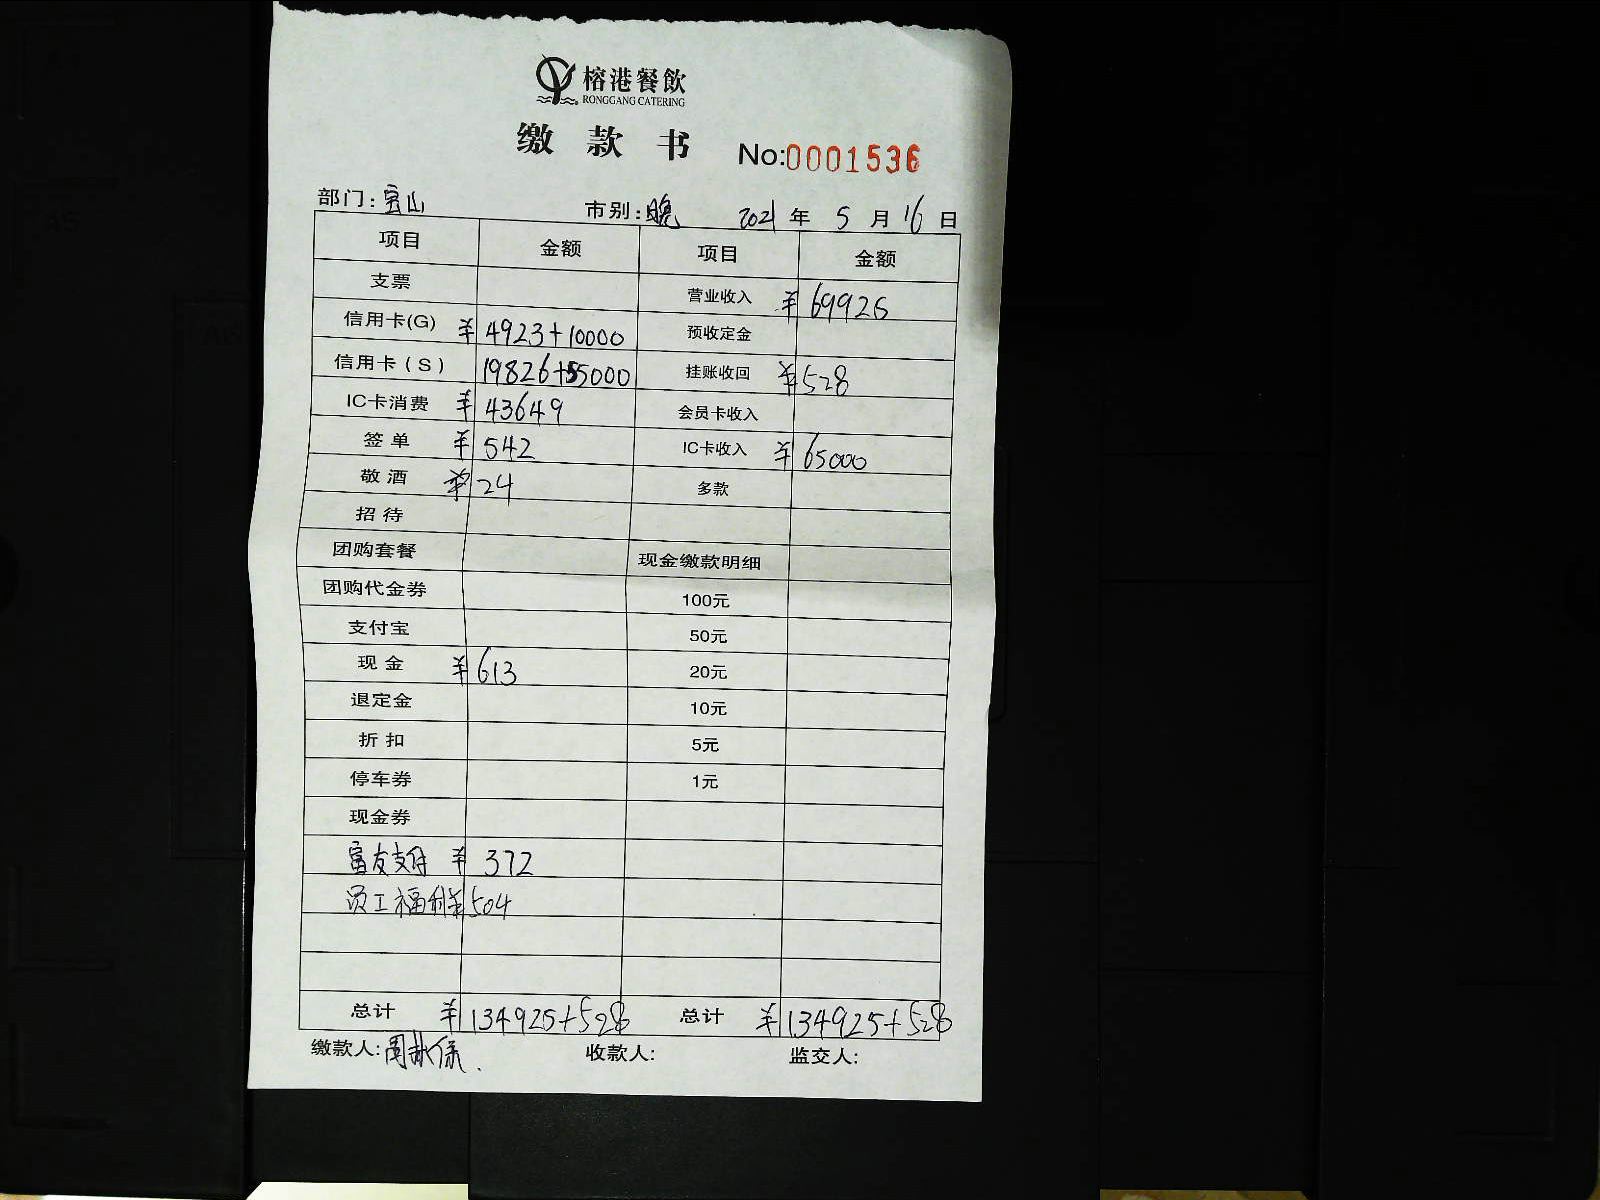 榕港餐飲
RONGGANG CATERING
缴款书 No:0001536
部门:宝山 市别:晚 2021年5月16日
项目 金额 项目 金额
支票 营业收入 ¥69925
信用卡(G) ¥4923+10000 预收定金
信用卡(S) 19826+55000 挂账收回 ¥528
IC卡消费 ¥43649 会员卡收入
签单 ¥542 IC卡收入 ¥65000
敬酒 ¥24 多款
招待
团购套餐 现金缴款明细
团购代金券 100元
支付宝 50元
现金 ¥613 20元
退定金 10元
折扣 5元
停车券 1元
现金券
富友支付 ¥372
员工福利 ¥504
总计 ¥134925+528 总计 ¥134925+528
缴款人:周 收款人: 监交人: